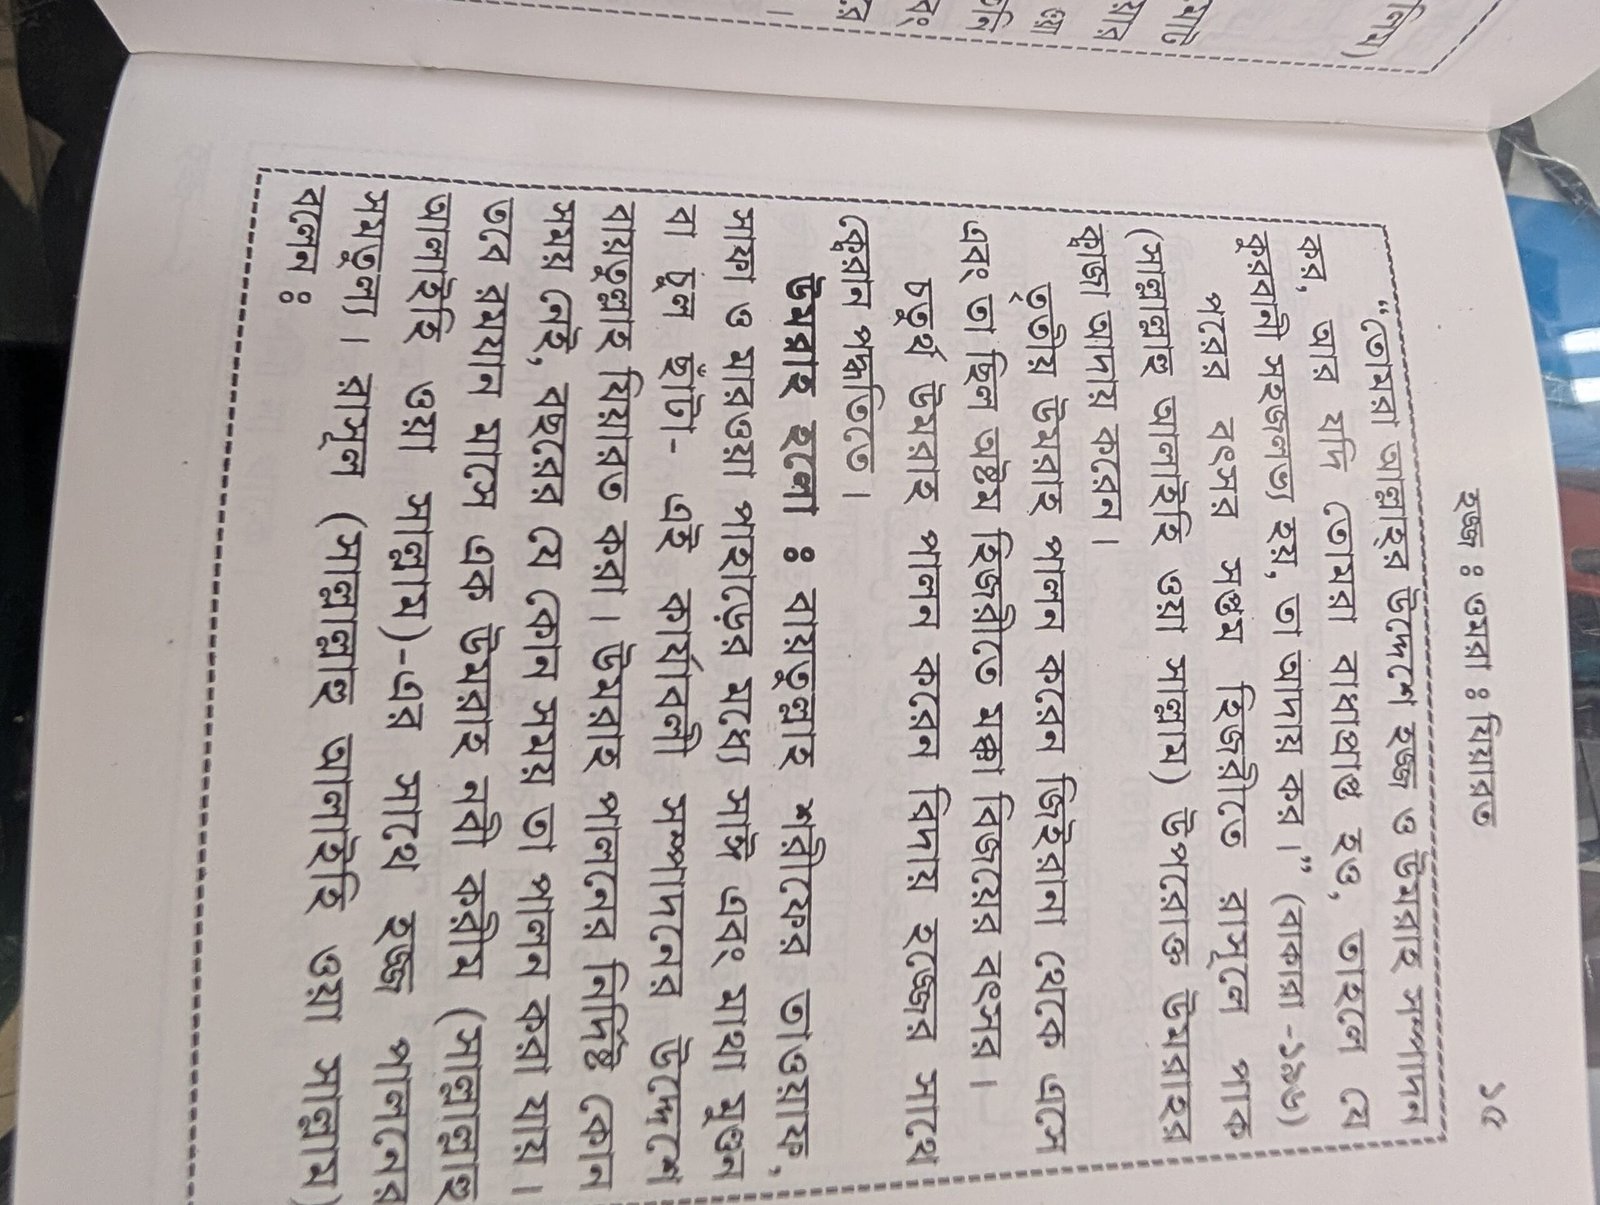 হজ্জ ঃ ওমরা ঃ যিয়ারত ১৫
“তোমরা আল্লাহ্‌র উদ্দেশে হজ্জ ও উমরাহ সম্পাদন
কর, আর যদি তোমরা বাধাপ্রাপ্ত হও, তাহলে যে
কুরবানী সহজলভ্য হয়, তা আদায় কর।” (বাকারা -১৯৬)
পরের বৎসর সপ্তম হিজরীতে রাসূলে পাক
(সাল্লাল্লাহু আলাইহি ওয়া সাল্লাম) উপরোক্ত উমরাহর
ক্বাজা আদায় করেন।
তৃতীয় উমরাহ পালন করেন জিইররানা থেকে এসে
এবং তা ছিল অষ্টম হিজরীতে মক্কা বিজয়ের বৎসর।
চতুর্থ উমরাহ পালন করেন বিদায় হজ্জের সাথে
ক্বেরান পদ্ধতিতে।
উমরাহ হলো ঃ বায়তুল্লাহ শরীফের তাওয়াফ,
সাফা ও মারওয়া পাহাড়ের মধ্যে সাঈ এবং মাথা মুণ্ডন
বা চুল ছাঁটা- এই কার্যাবলী সম্পাদনের উদ্দেশে
বায়তুল্লাহ যিয়ারত করা। উমরাহ পালনের নির্দিষ্ট কোন
সময় নেই, বছরের যে কোন সময় তা পালন করা যায়।
তবে রমযান মাসে এক উমরাহ নবী করীম (সাল্লাল্লাহু
আলাইহি ওয়া সাল্লাম)-এর সাথে হজ্জ পালনের
সমতুল্য। রাসূল (সাল্লাল্লাহু আলাইহি ওয়া সাল্লাম)
বলেন ঃ